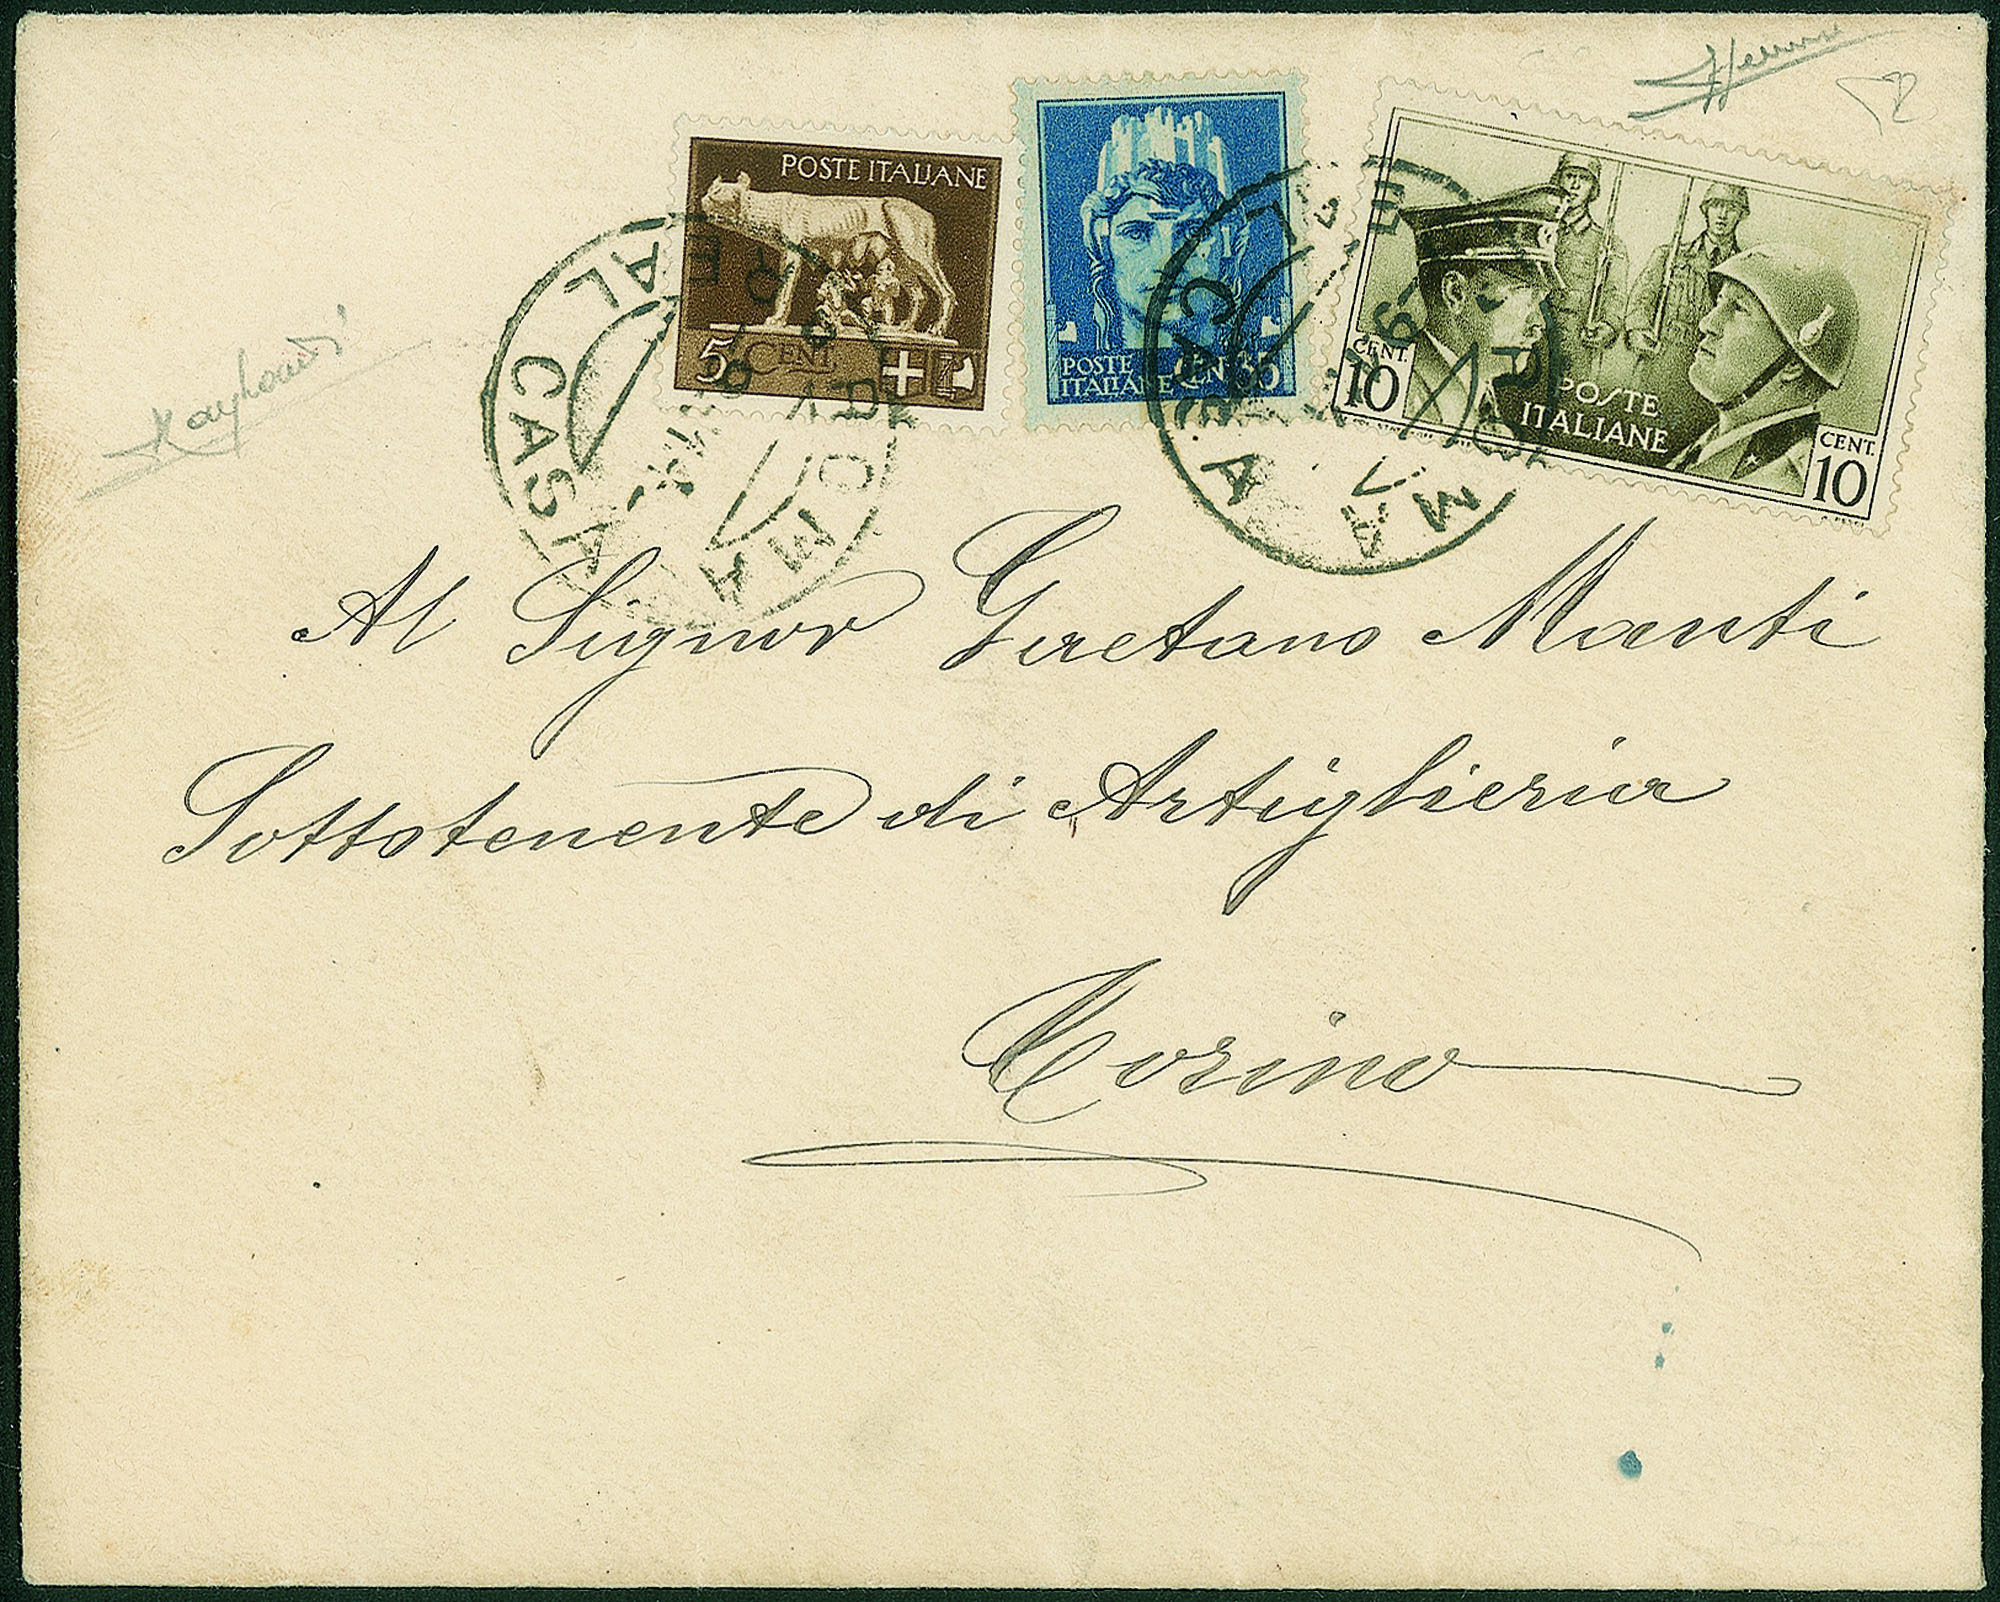 POSTE ITALIANE
5 CENT
POSTE
ITALIANE CENT 35
CENT.
10
POSTE
ITALIANE
CENT.
10
REAL CASA
ROMA
REAL CASA
ROMA
Al Signor Gaetano Manti
Sottotenente di Artiglieria
Torino